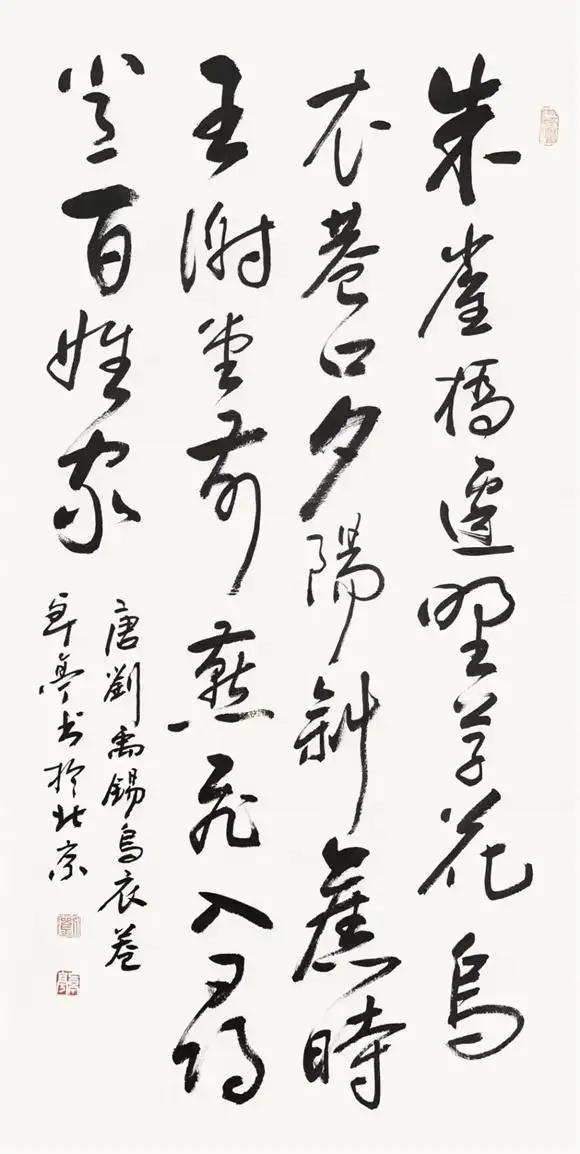 朱雀橋邊野草花烏
衣巷口夕陽斜舊時
王謝堂前燕飛入尋
常百姓家
唐劉禹錫烏衣巷
亭书於北京